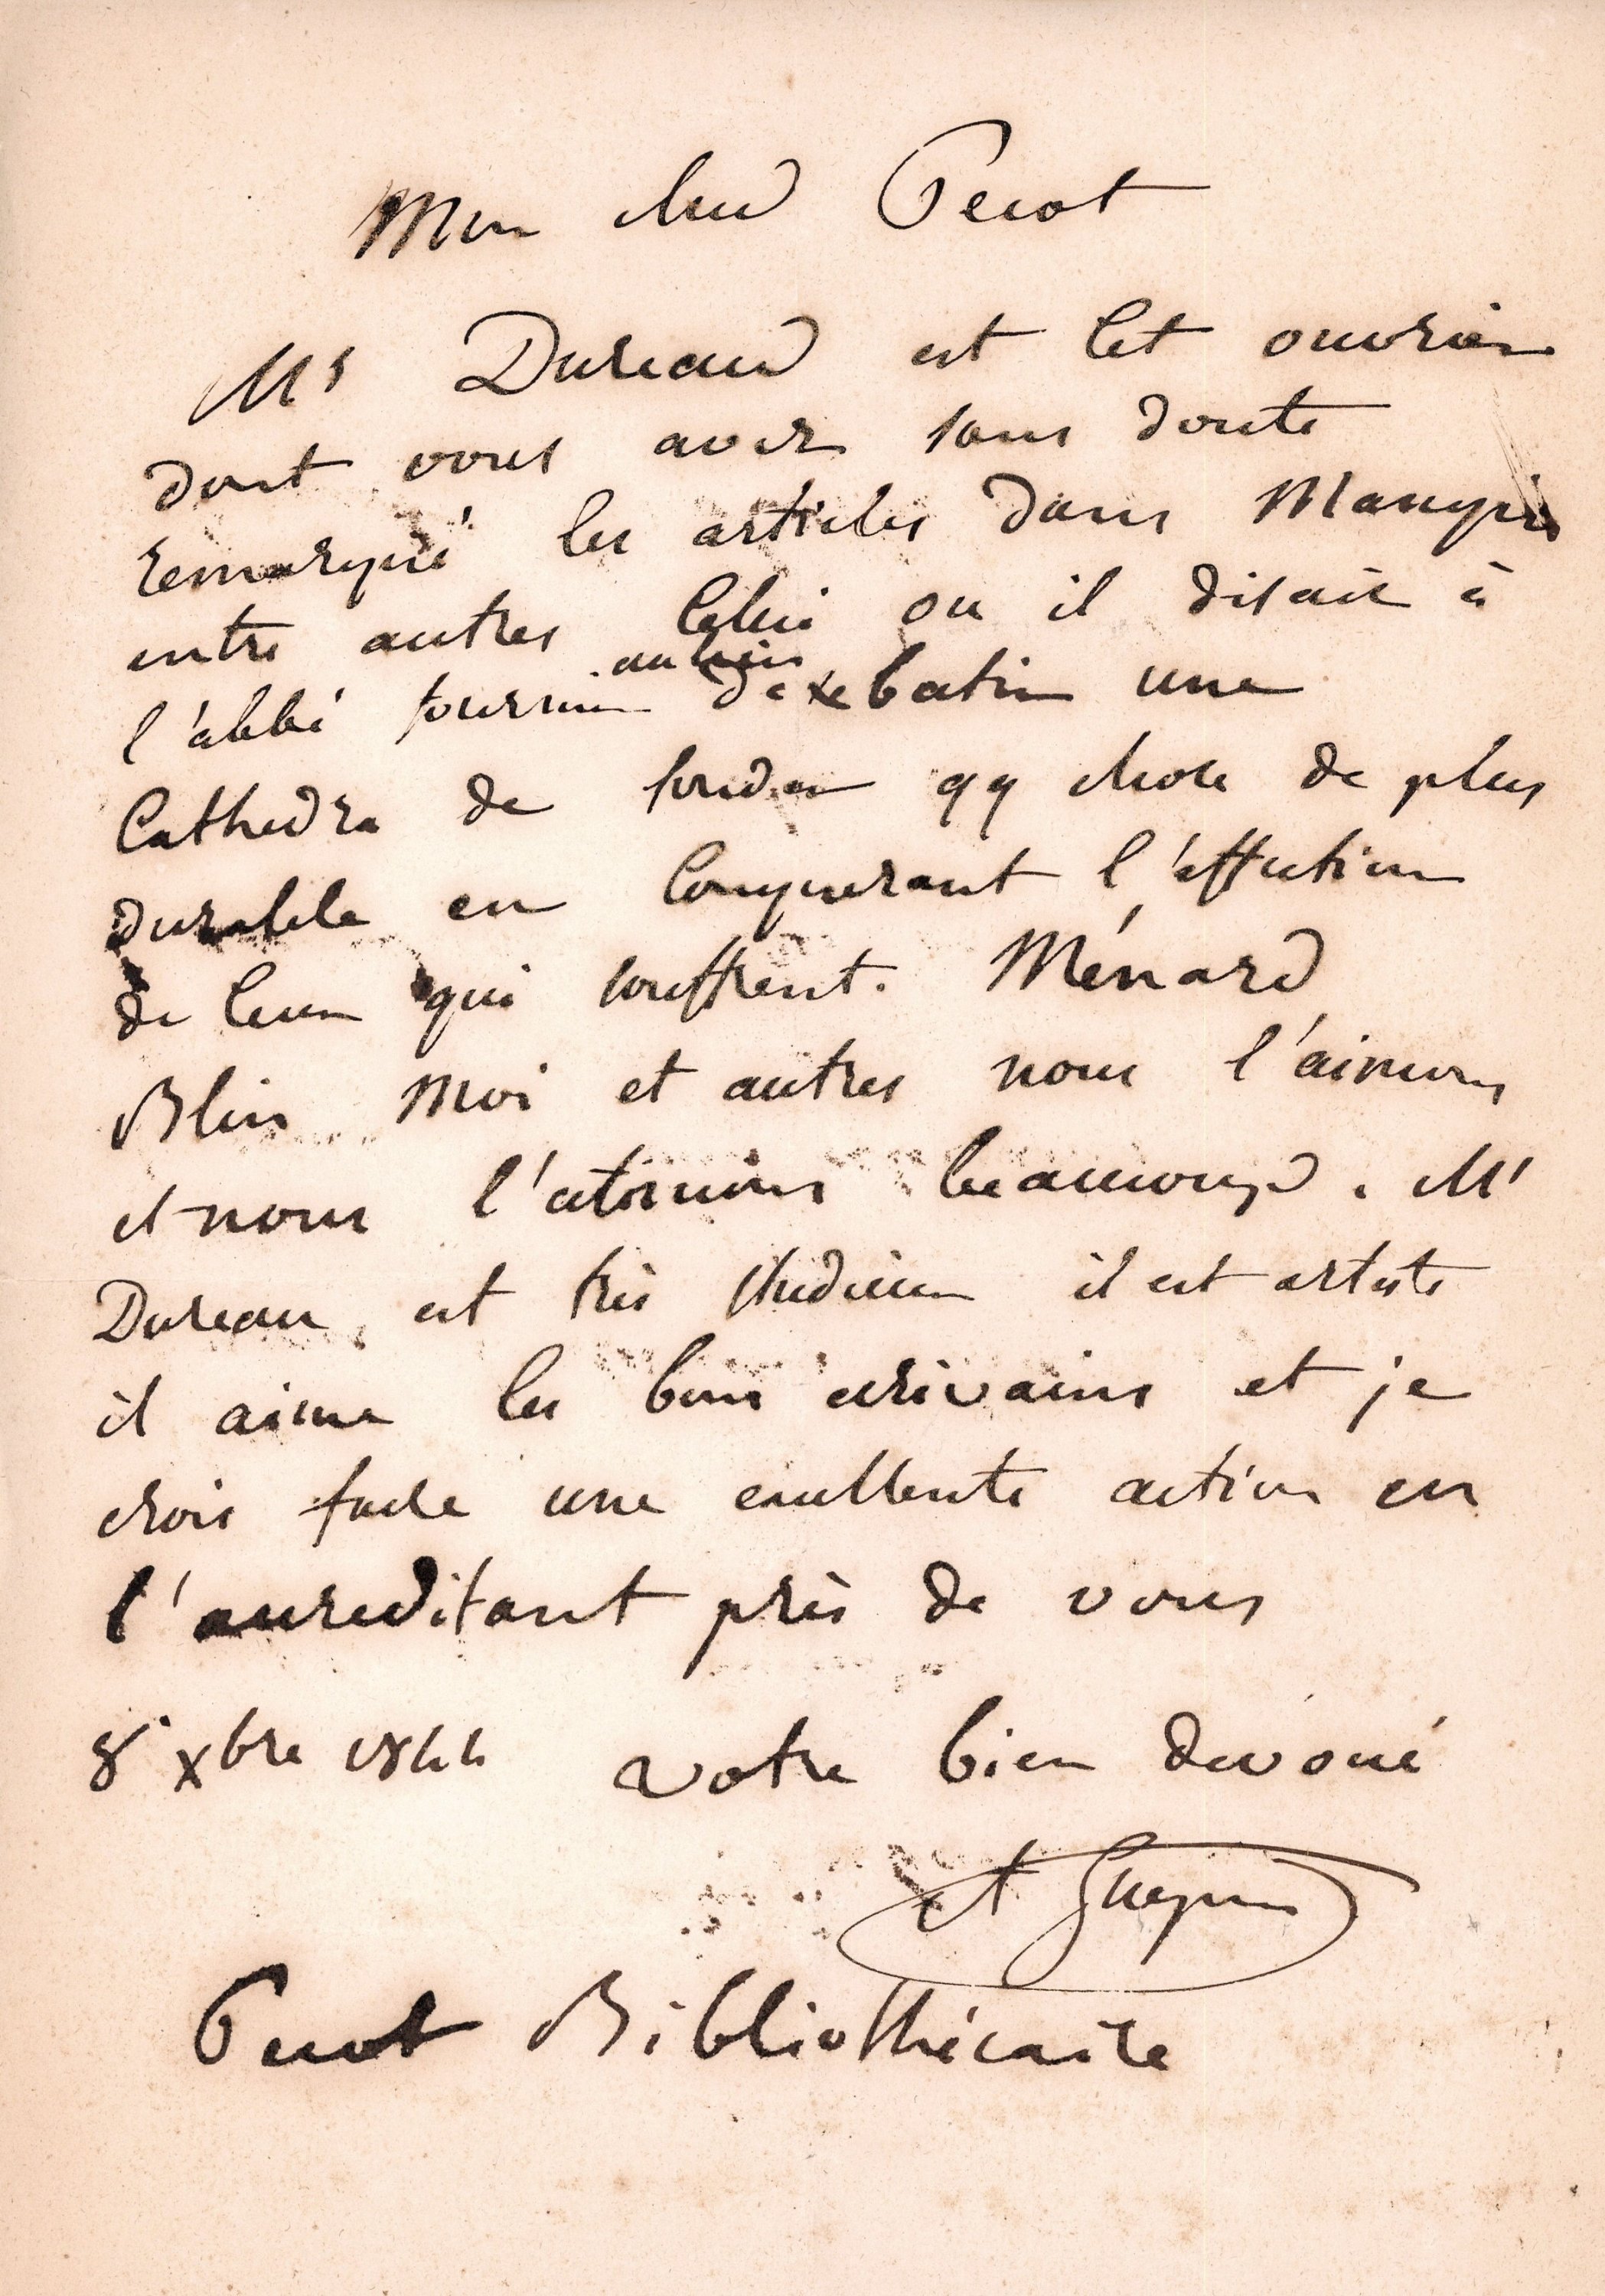 Mon cher Pecot
Mr Dureau est cet ouvrier
dont vous avez sans doute
remarqué les articles dans
entre autres celui ou il disait à
l'abbé fournier au lieu de batir une
Cathedra de fonder qq chose de plus
durable en conquerant l'affection
de ceux qui souffrent. Ménard
Blin Moi et autres nous l'aimons
et nous l'estimons beaucoup. Mr
Dureau est très studieux il est artiste
il aime les bons ecrivains et je
crois faire une excellente action en
l'accreditant près de vous
8 xbre 1844 votre bien devoué
A Guépin
Pecot Bibliothécaire